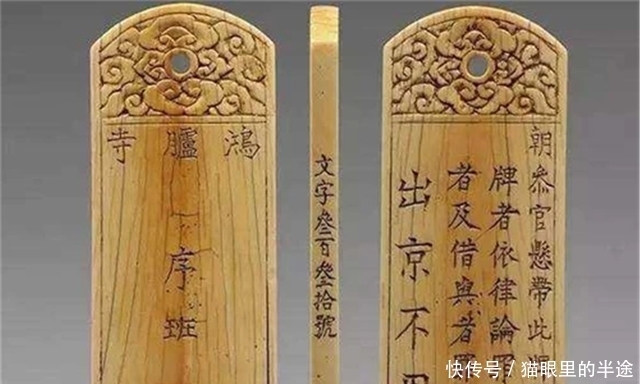 鴻臚寺
序班
文字叁百叁拾號
朝叅官懸帶此
牌者依律論
者及借與者
出京不
快传号 / 猫眼里的半途